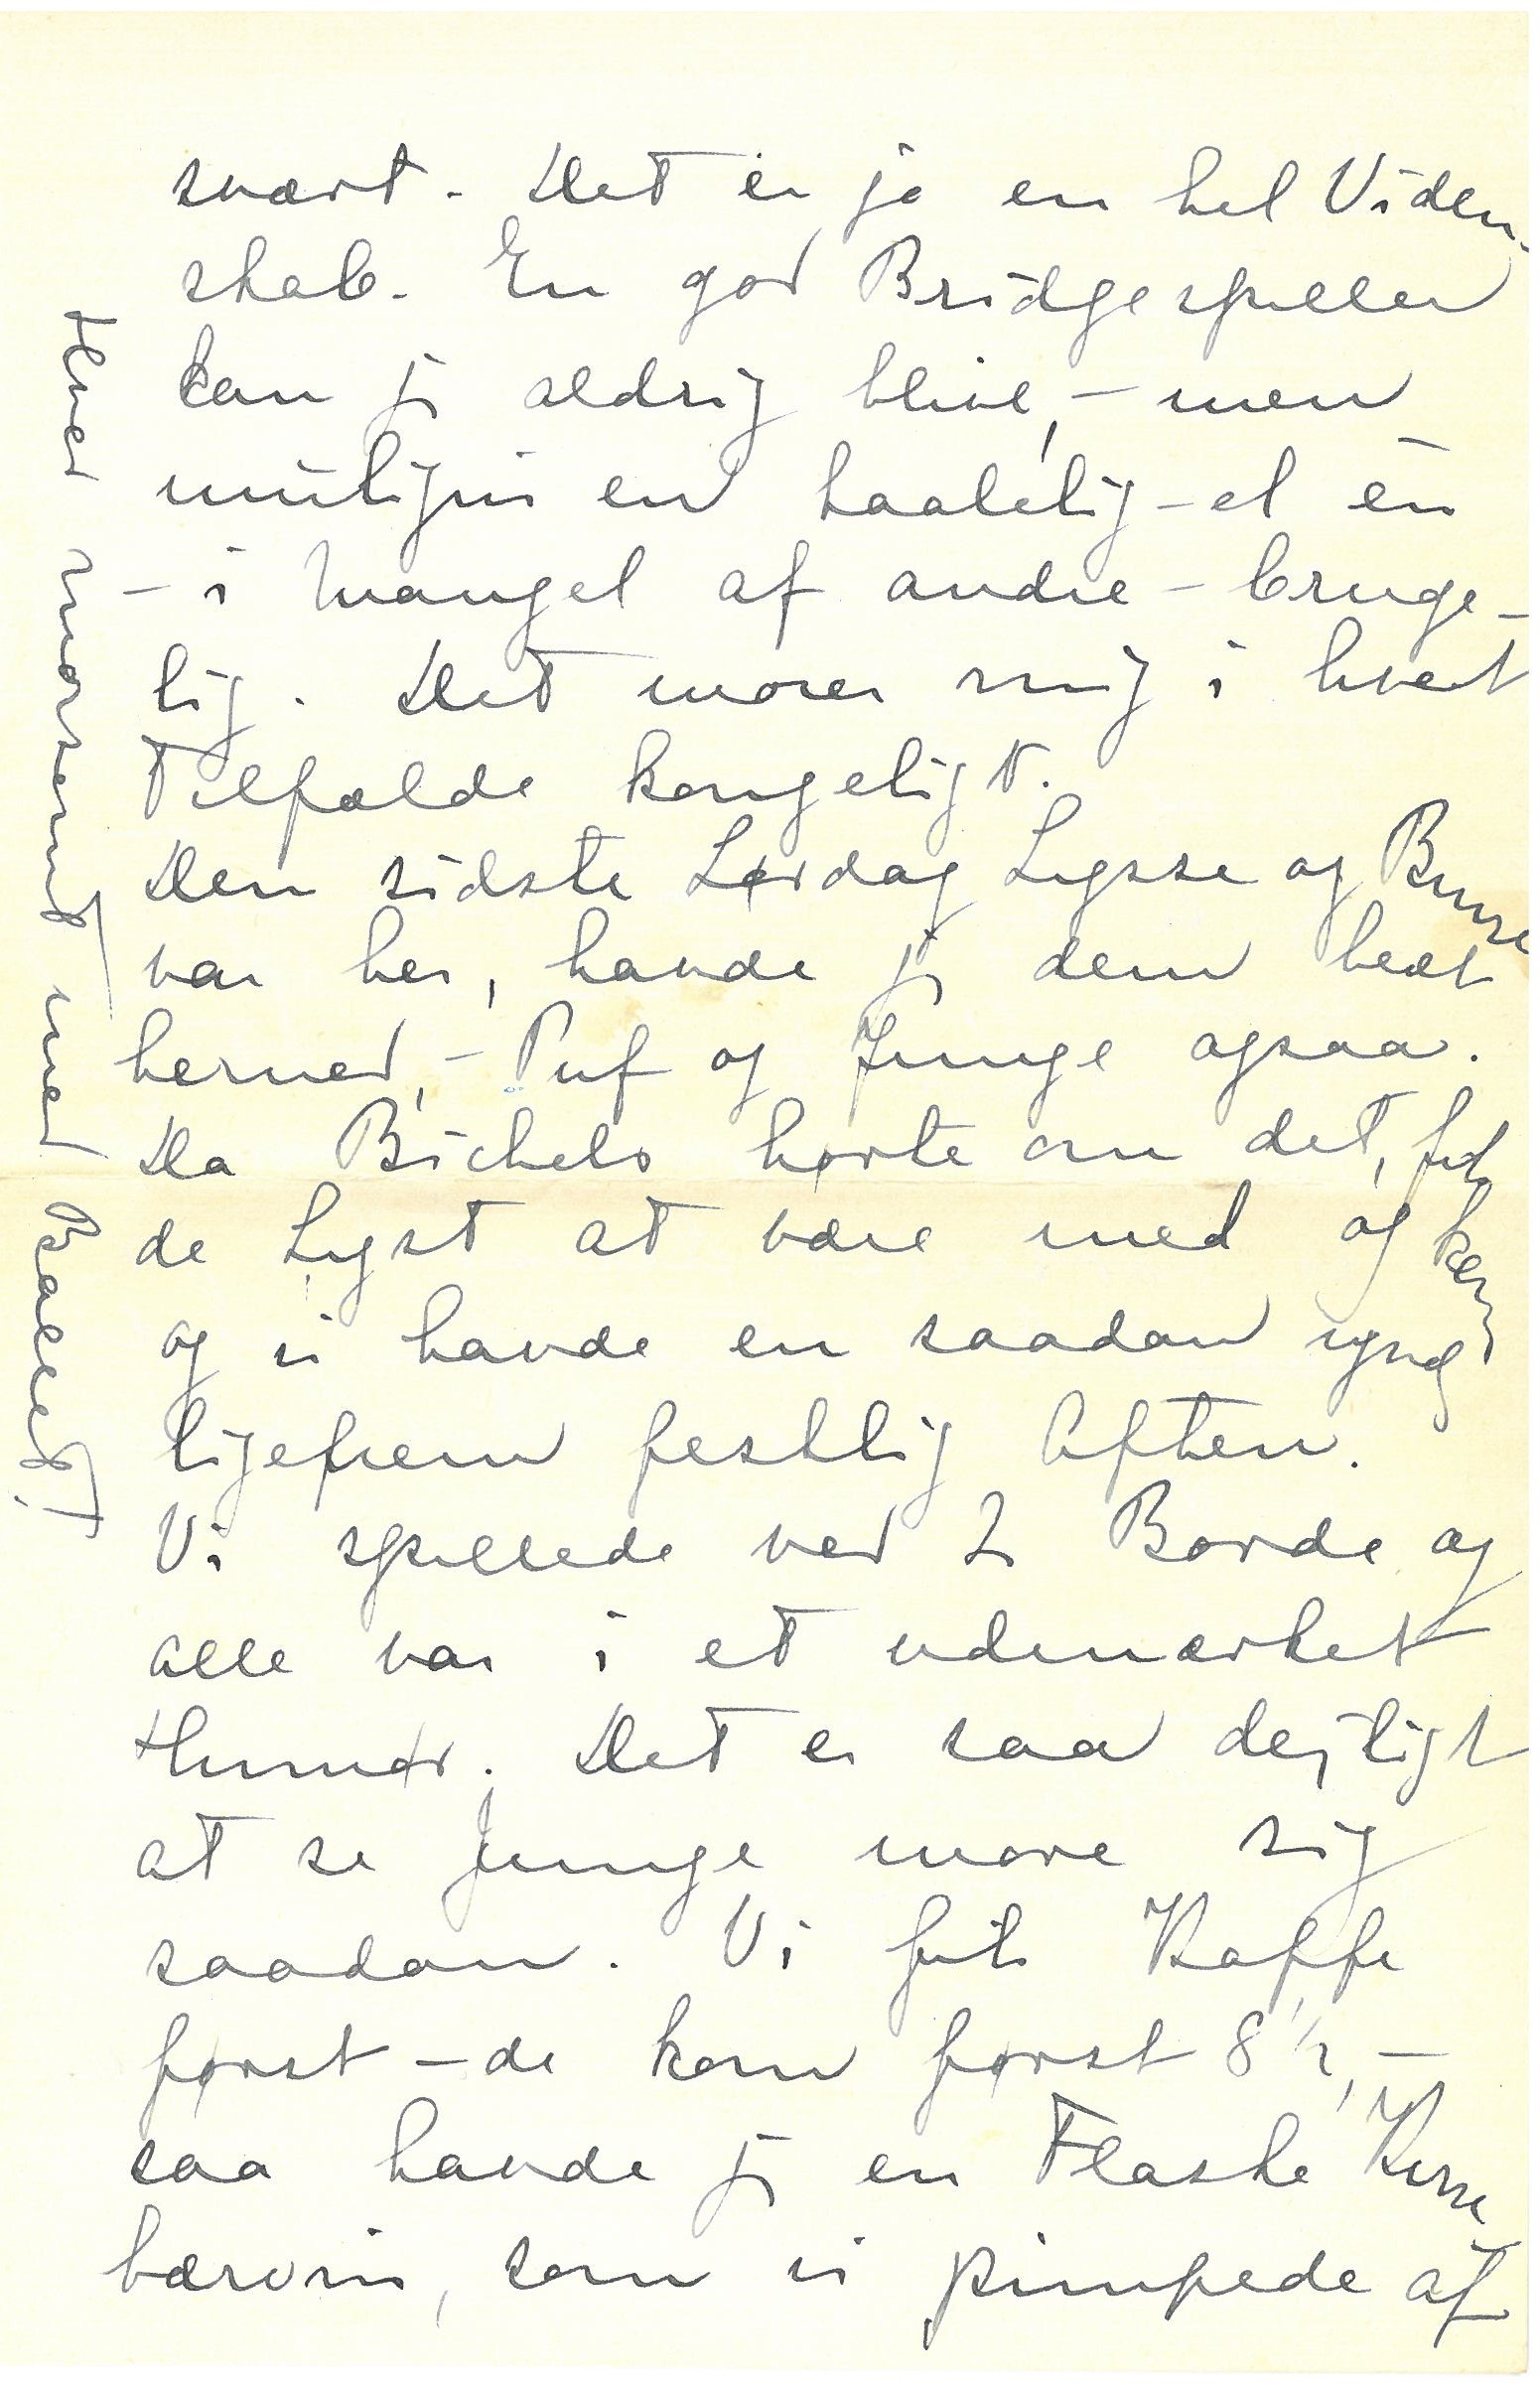 svært. Det er jo en hel Viden-
skab. En god Bridgespiller
kan jeg aldrig blive, – men
muligvis en taalelig – el en
– i Mangel af andre – bruge-
lig. Det morer mig i hvert
Tilfælde kongeligt.
Den sidste Lørdag Lysse og Busse
var her, havde jeg dem bedt
herned, – Puf og Junge ogsaa.
Da Bichels hørte om det, fik
de Lyst at være med og kom
og vi havde en saadan
ligefrem festlig Aften.
Vi spillede ved 2 Borde og
alle var i et udmærket
Humør. Det er saa dejligt
at se Junge more sig
saadan. Vi fik Kaffe
først – de kom først 8½, –
saa havde jeg en Flaske Kirse-
bærvin, som vi pimpede af
Hvor morsomt med Ballet!